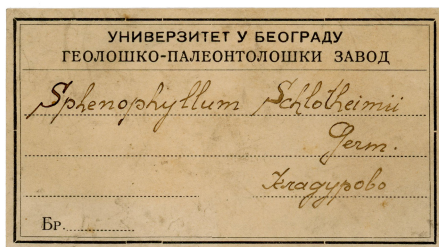 УНИВЕРЗИТЕТ У БЕОГРАДУ
ГЕОЛОШКО-ПАЛЕОНТОЛОШКИ ЗАВОД
Sphenophyllum Schlotheimii
Germ.
Кладурово
Бр.